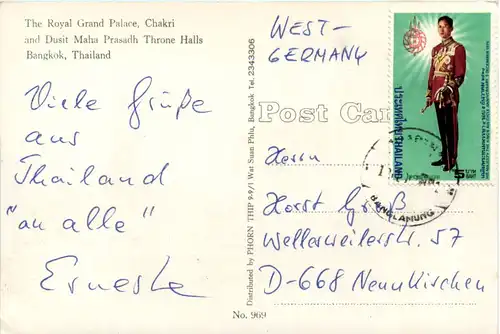 The Royal Grand Palace, Chakri
and Dusit Maha Prasadh Throne Halls
Bangkok, Thailand
Viele Grüße
aus
Thailand
"an alle"
Erneste
Distributed by PHORN THIP 9-9/1 Wat Suan Phlu, Bangkok Tel. 2343306
No. 969
WEST-
GERMANY
Post Car
Herrn
Horst Groß
Wellesweilerstr. 57
D-668 Neunkirchen
ประเทศไทย THAILAND
5
BANGLAMUNG